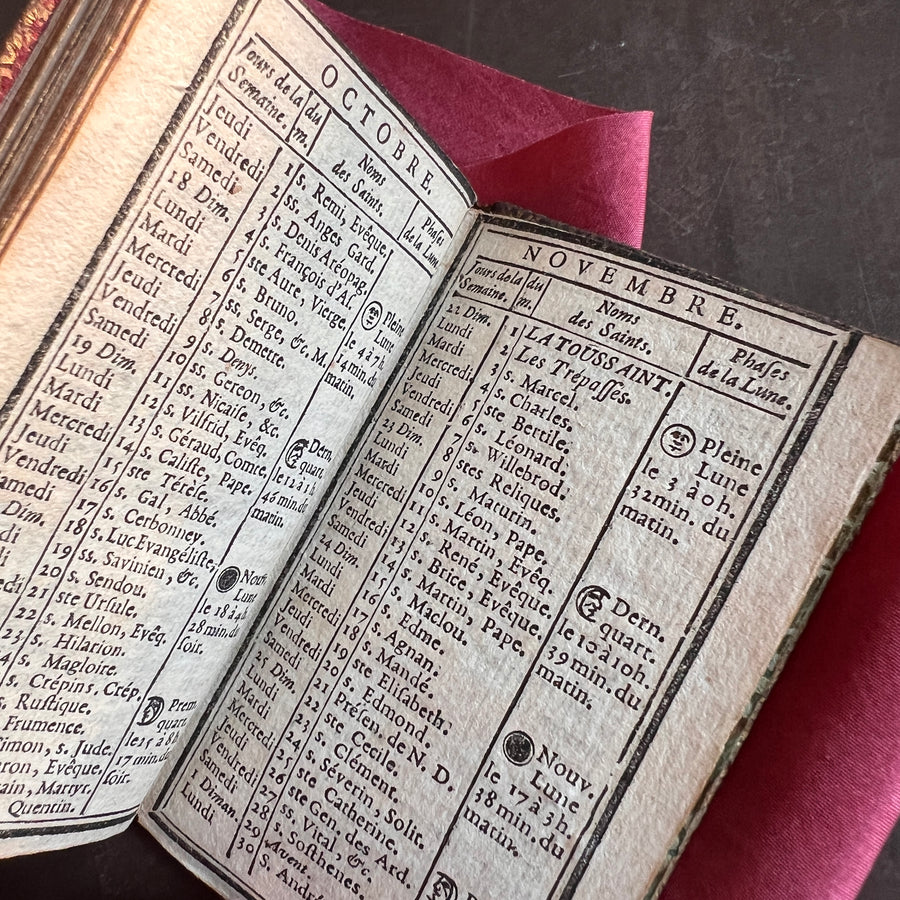 OCTOBRE.
Jours de la Semaine. du m. Noms des Saints. Phases de la Lune.
Jeudi 1 s. Remi, Evêque.
Vendredi 2 ss. Anges Gard.
Samedi 3 s. Denis Aréopag.
18 Dim. 4 s. François d'As.
Lundi 5 ste Aure, Vierge.
Mardi 6 s. Bruno.
Mercredi 7 ss. Serge, &c, M.
Jeudi 8 s. Demetre.
Vendredi 9 s. Denys.
Samedi 10 ss. Gereon, &c.
19 Dim. 11 ss. Nicaise, &c.
Lundi 12 s. Vilfrid, Evêq.
Mardi 13 s. Géraud, Comte.
Mercredi 14 s. Caliste, Pape.
Jeudi 15 ste Térèse.
Vendredi 16 s. Gal, Abbé.
Samedi 17 s. Cerbonney.
Dim. 18 s. Luc Evangéliste,
19 ss. Savinien, &c.
20 s. Sendou.
21 ste Ursule.
22 s. Mellon, Evêq.
23 s. Hilarion.
s. Magloire.
s. Crépins. Crép.
s. Rustique.
Frumence.
Simon, s. Jude.
Evêque.
Martyr.
Quentin.
Pleine
Lune
le 4 à 7 h.
14 min. du
matin.
Dern.
quart.
le 12 à 1 h.
46 min. du
matin.
Nouv.
Lune
le 18 à 4 h.
28 min. du
soir.
Prem.
quart.
le 25 à 8 h.
17 min. du
soir.
NOVEMBRE.
Jours de la Semaine. du m. Noms des Saints. Phases de la Lune.
22 Dim. 1 LA TOUSSAINT.
Lundi 2 Les Trépasses.
Mardi 3 s. Marcel.
Mercredi 4 s. Charles.
Jeudi 5 ste Bertile.
Vendredi 6 s. Léonard.
Samedi 7 s. Willebrod.
23 Dim. 8 stes Reliques.
Lundi 9 s. Maturin.
Mardi 10 s. Léon, Pape.
Mercredi 11 s. Martin, Evêq.
Jeudi 12 s. René, Evêque.
Vendredi 13 s. Brice, Evêque.
Samedi 14 s. Martin, Pape.
24 Dim. 15 s. Maclou.
Lundi 16 s. Edme.
Mardi 17 s. Agnan.
Mercredi 18 s. Mandé.
Jeudi 19 ste Elisabeth.
Vendredi 20 s. Edmond.
Samedi 21 Présen. de N. D.
25 Dim. 22 ste Cecile.
Lundi 23 s. Clément.
Mardi 24 s. Séverin, Solit.
Mercredi 25 ste Catherine.
Jeudi 26 ste Gen. des Ard.
Vendredi 27 ss. Vital, &c.
Samedi 28 s. Sosthenes.
1 Diman. 29 Avent.
Lundi 30 s. André
Pleine
Lune
le 3 à 0 h.
32 min. du
matin.
Dern.
quart.
le 10 à 10 h.
39 min. du
matin.
Nouv.
Lune
le 17 à 3 h.
38 min. du
matin.